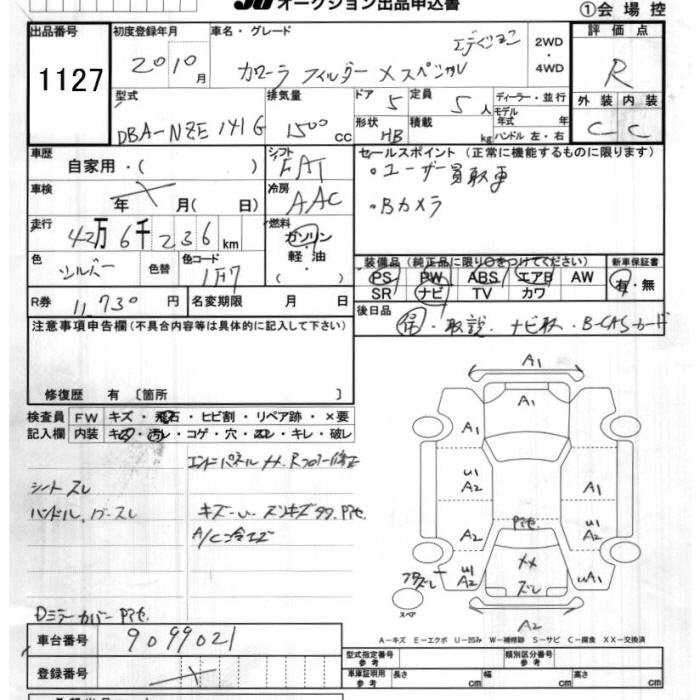 オークション出品申込書
①会場控
出品番号
1127
初度登録年月
2010月
車名・グレード
カローラ フィルダー Xスペシャル
2WD
・
4WD
評価点
R
型式
DBA-NZE141G
排気量
1500cc
ドア
5
定員
5人
ディーラー・並行
モデル年式 年
形状
HB
積載
kg
ハンドル 左・右
外装
内装
C
C
車歴
自家用・( )
シフト
FAT
セールスポイント (正常に機能するものに限ります)
・ユーザー買取車
・Bカメラ
車検
年 月( 日)
冷房
AAC
走行
42万6千236km
燃料
ガソリン
・
軽油
( )
色
シルバー
色替
色コード
1F7
装備品 (純正品に限り○をつけてください)
新車保証書
PS PW ABS エアB AW
SR ナビ TV カワ
有・無
R券
11,730円
名変期限 月 日
後日品
保・取説・ナビ取・B-CASカード
注意事項申告欄(不具合内容等は具体的に記入して下さい)
修復歴 有 〔箇所 〕
検査員記入欄
FW
キズ・飛石・ヒビ割・リペア跡・×要
内装
キズ・汚レ・コゲ・穴・スレ・キレ・破レ
エンドパネルXX.Rフロアー修正
シートスレ
ハンドル.
A/C冷エズ
Dミラーカバー P1セ.
A1
A1
A1
U1
A2
A1
P1セ
A2
U1
A2
U1
A2
XX
ズレ
UA1
スペア
A2
A−キズ E−エクボ U−凹み W−補修跡 S−サビ C−腐食 XX−交換済
車台番号
9099021
登録番号
型式指定番号
参考
類別区分番号
参考
車庫証明用
参考
長さ cm
幅 cm
高さ cm